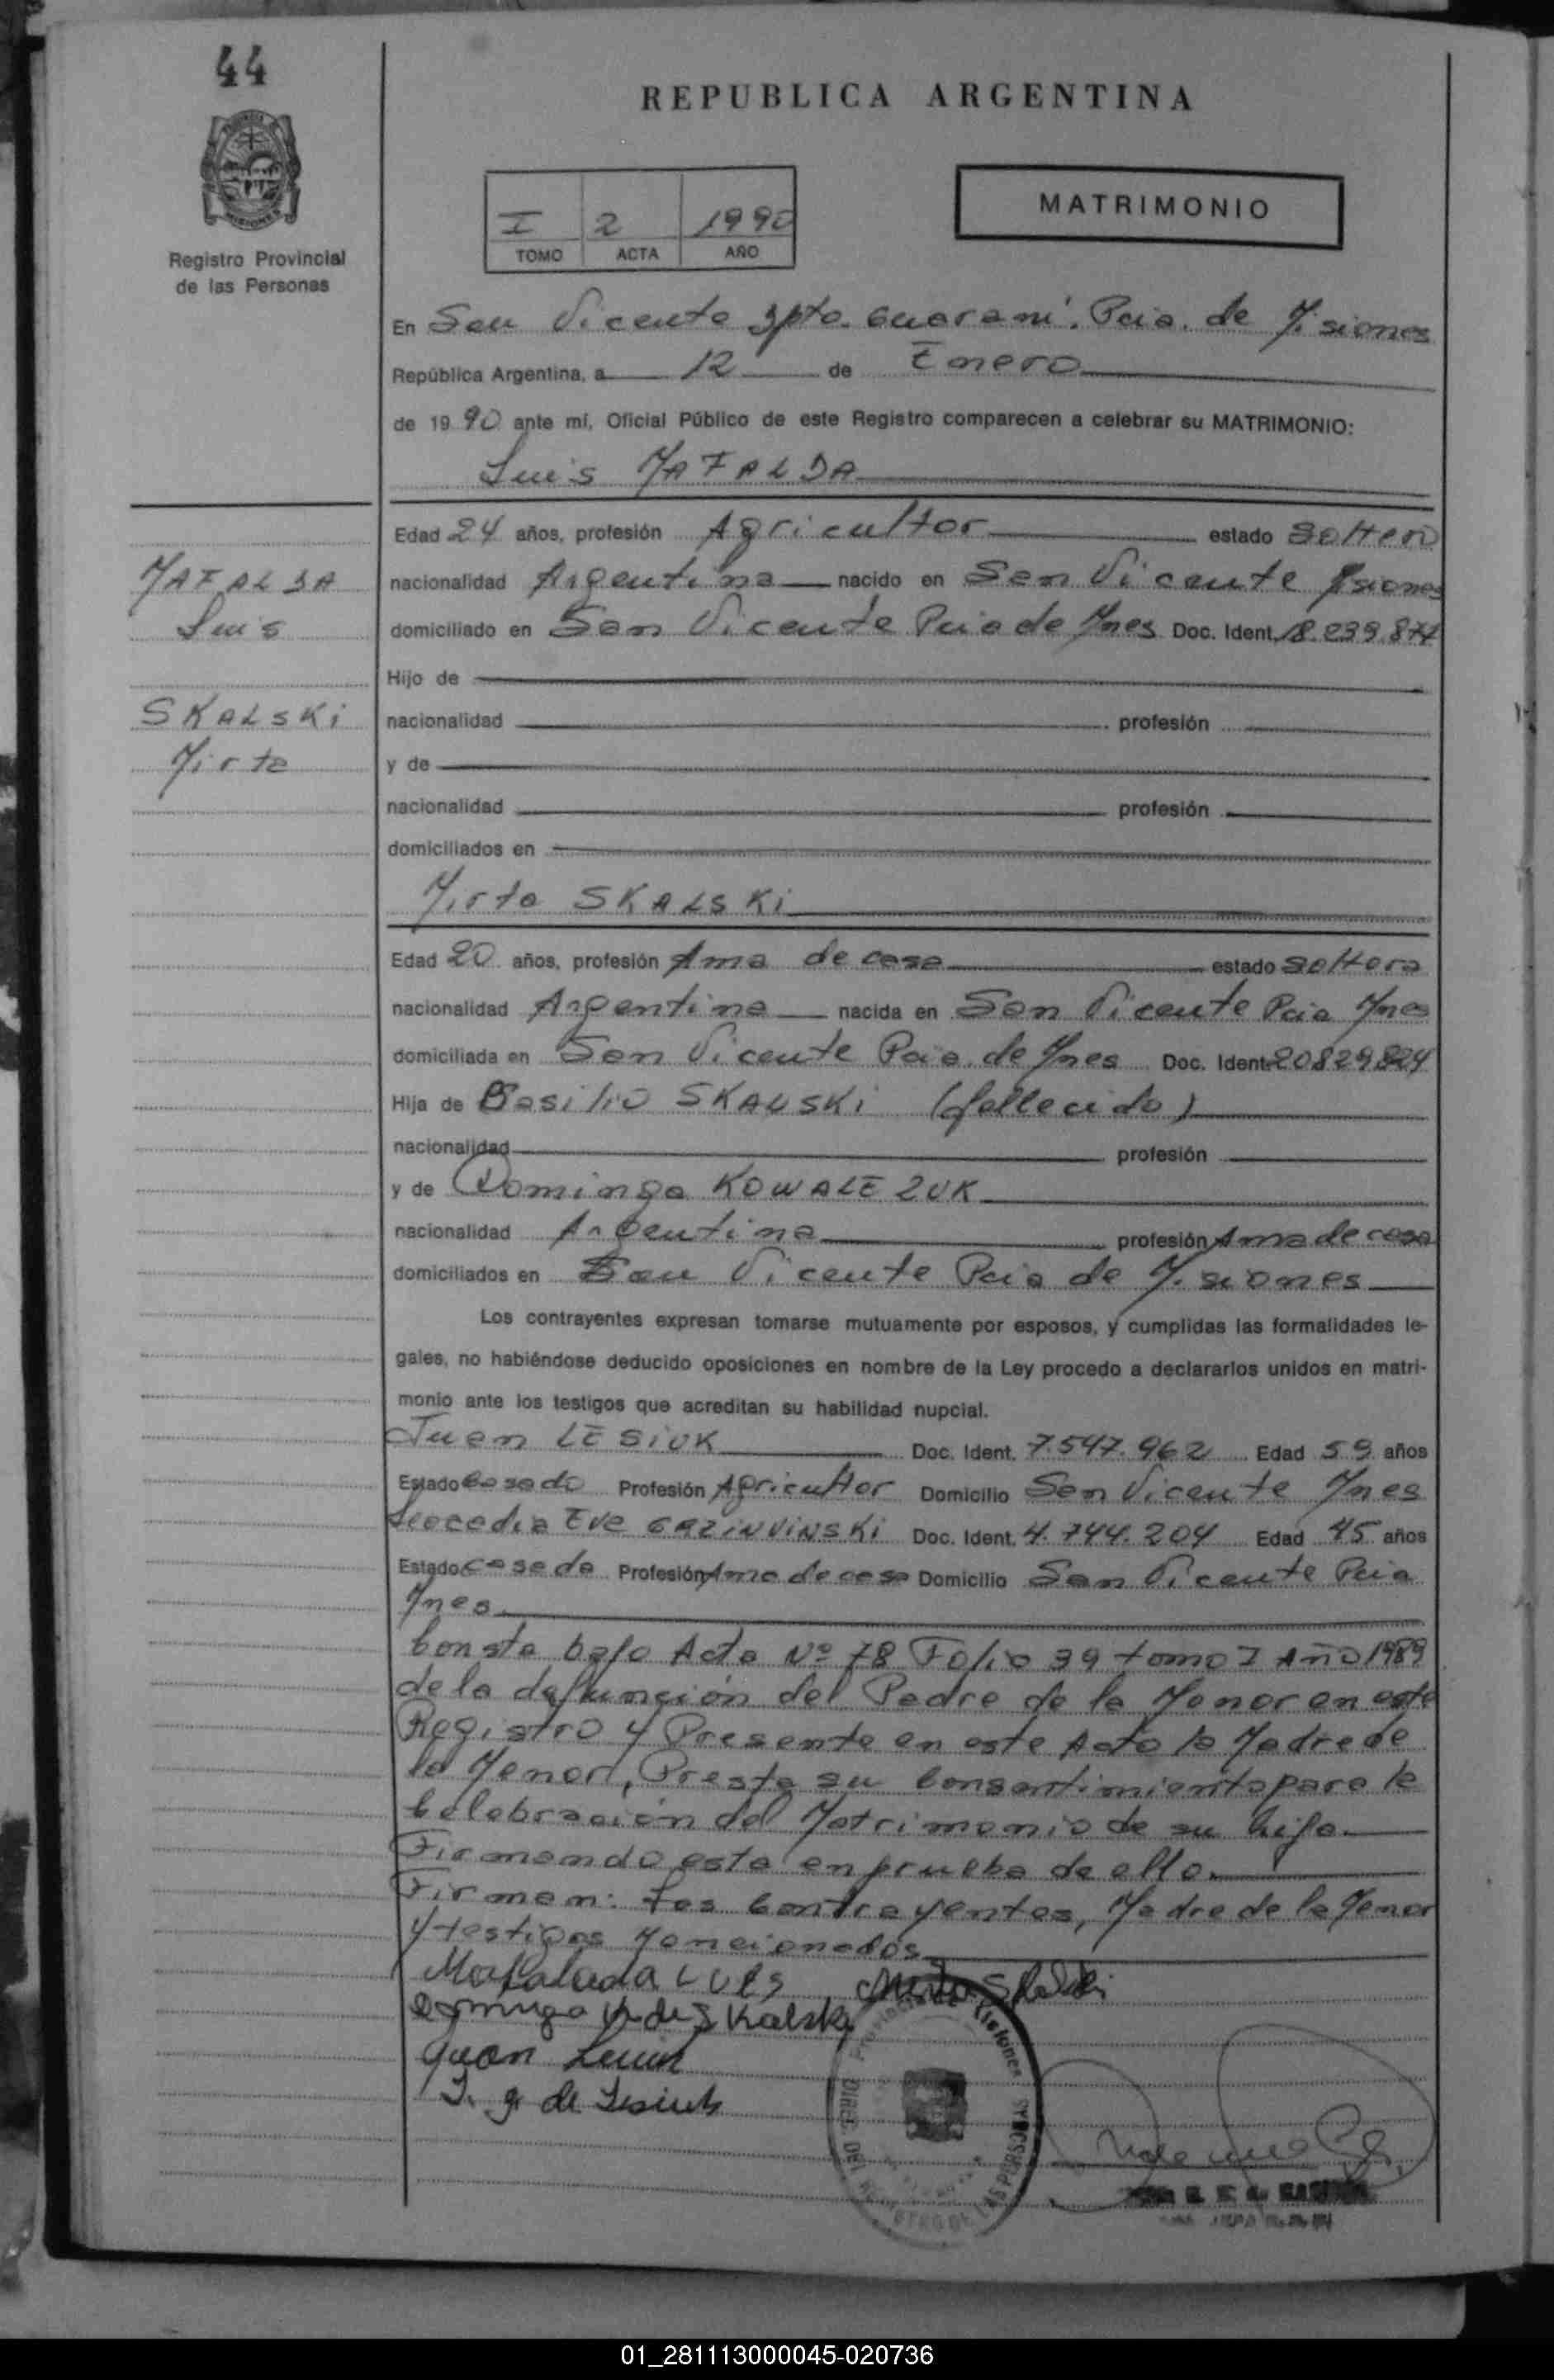 44
REPUBLICA ARGENTINA
MATRIMONIO
I 2 1990
TOMO ACTA AÑO
Registro Provincial
de las Personas
En San Vicente Dpto. Guaraní. Pcia. de Misiones
República Argentina, a 12 de Enero
de 1990 ante mí, Oficial Público de este Registro comparecen a celebrar su MATRIMONIO:
Luis MAFALDA
Edad 24 años, profesión Agricultor estado soltero
MAFALDA
Luis
nacionalidad Argentina nacido en San Vicente Msiones
domiciliado en San Vicente Pcia de Mnes Doc. Ident. 18.239.874
Hijo de
SKALSKi
Mirta
nacionalidad profesión
y de
nacionalidad profesión
domiciliados en
Mirta SKALSKi
Edad 20 años, profesión Ama de casa estado soltera
nacionalidad Argentina nacida en San Vicente Pcia Mnes
domiciliada en San Vicente Pcia. de Mnes Doc. Ident. 20829824
Hija de Basilio SKALSKi (fallecido)
nacionalidad profesión
y de Dominga KOWALEZUK
nacionalidad Argentina profesión Ama de casa
domiciliados en San Vicente Pcia de Misiones
Los contrayentes expresan tomarse mutuamente por esposos, y cumplidas las formalidades le-
gales, no habiéndose deducido oposiciones en nombre de la Ley procedo a declararlos unidos en matri-
monio ante los testigos que acreditan su habilidad nupcial.
Juan LESiUK Doc. Ident. 7.547.962 Edad 59 años
Estado Casado Profesión Agricultor Domicilio San Vicente Mnes
Leocadia Eve GRZiNViNSKi Doc. Ident. 4.744.204 Edad 45 años
Estado casada Profesión Ama de casa Domicilio San Vicente Pcia
Mnes
Consta bajo Acta Nº 78 Folio 39 tomo I Año 1989
de la defunción del Padre de la Menor en este
Registro y Presente en este Acto la Madre de
la Menor, Presta su Consentimiento para la
Celebración del Matrimonio de su hija.
Firmando esta en prueba de ello.
Firman: Los Contrayentes, Madre de la Menor
y testigos Mencionados
Mafalada LUES Mirta Skalski
Dominga K de Skalski
Juan Lesiuk
L. g. de Lesiuk
01_281113000045-020736